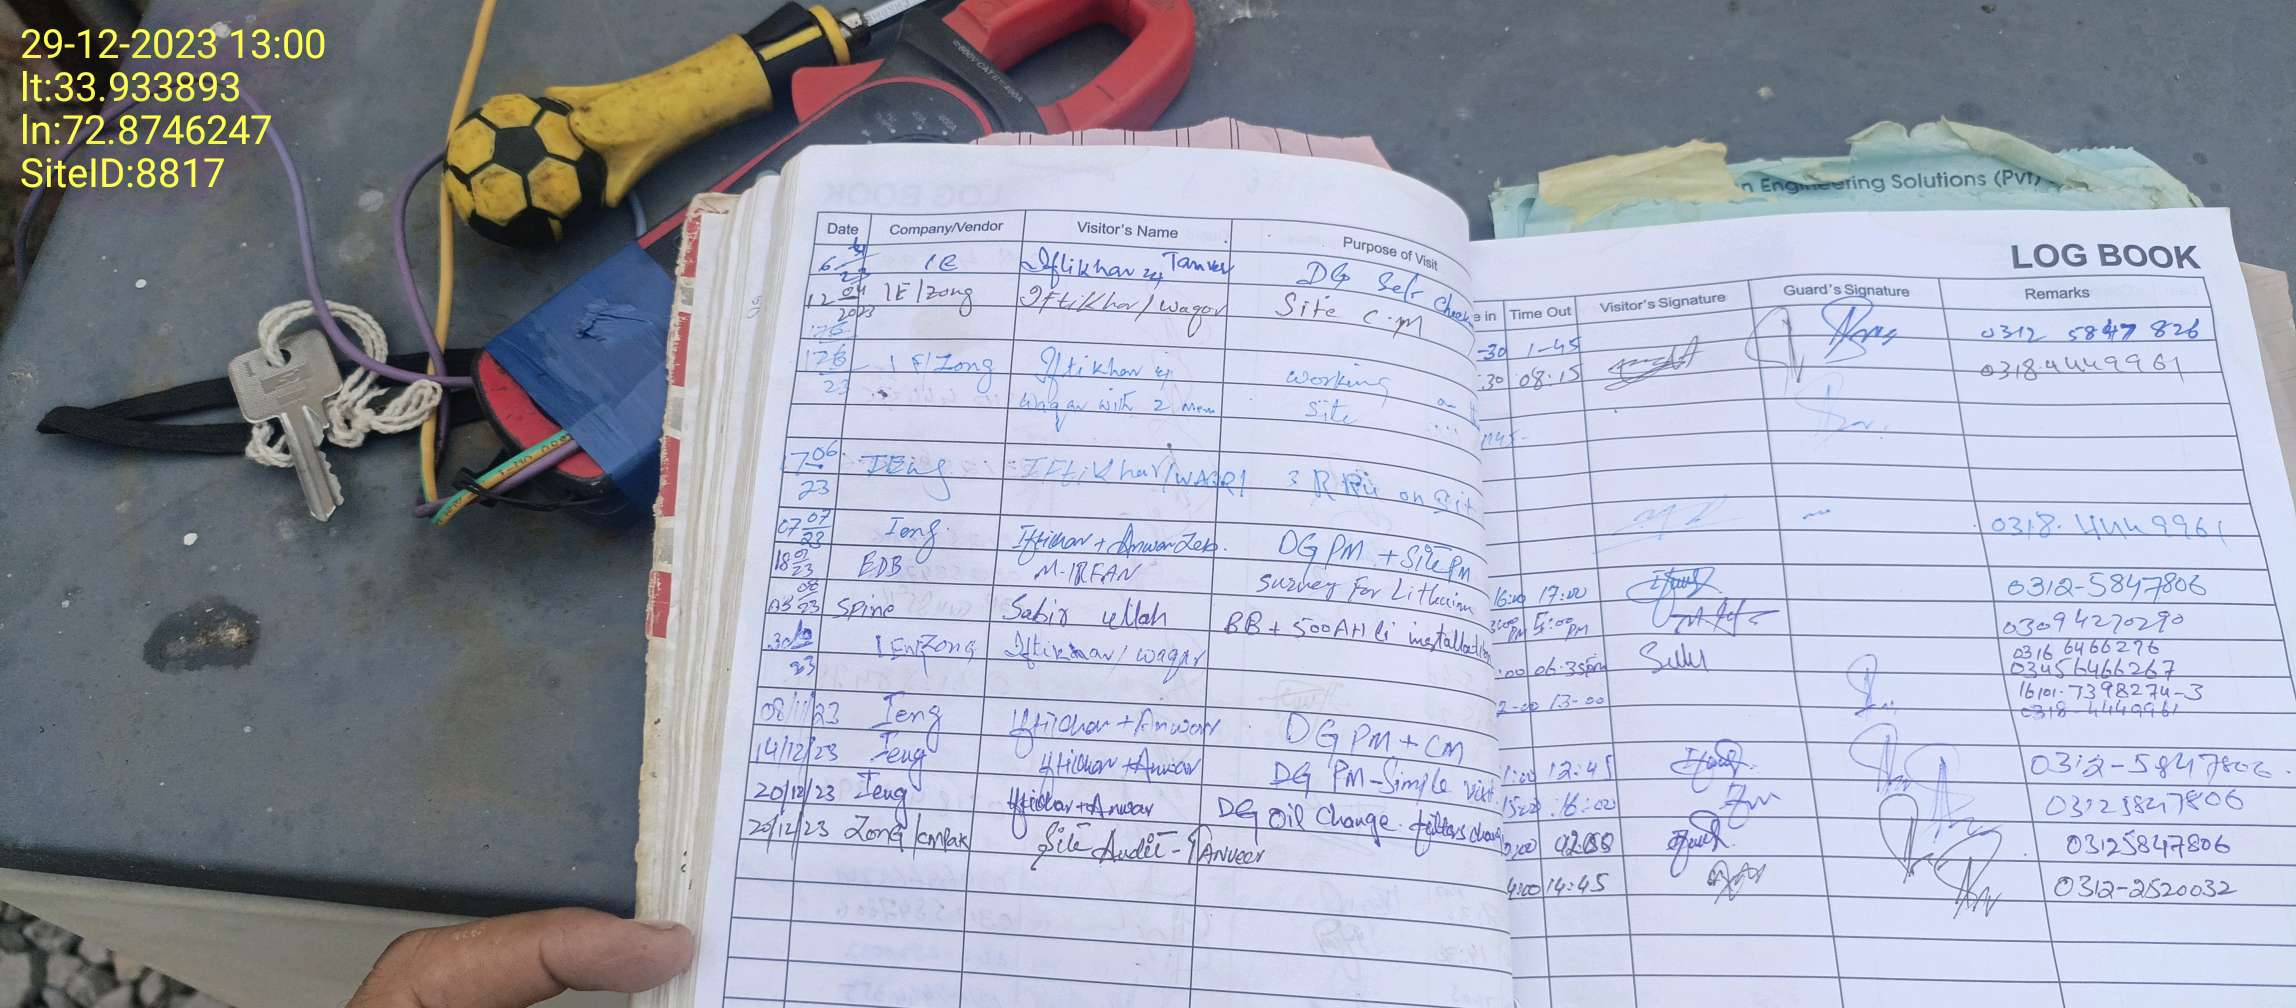 29-12-2023 13:00
lt:33.933893
ln:72.8746247
SiteID:8817
600V CAT
n Engineering Solutions (Pvt)
LOG BOOK
Date Company/Vendor Visitor's Name Purpose of Visit
e in Time Out Visitor's Signature Guard's Signature Remarks
6 4 23 IE Iftikhar Tanver DG Self Check
-30 1-45 0312 5847 826
12 04 2023 IE/Zong Iftikhar/Waqar Site C.M
:30 08:15 0318.4449961
176
176 IE/Zong Iftikhar & working
23 Waqar with 2 Men Site
1745-
7 06 IEng Iftikhar/WAQR 3 R on Sit
23 0318.4449961
07 07 23 Ieng Iftikhar + Anwar Zeb. DG PM + Site PM
16:00 17:00 0312-5847806
18 23 EDB M-IRFAN Survey For Lithuim
PM 5:00 PM 03094270290
03 08 23 Spine Sabir ullah BB + 500AH li installation
:00 06:35pm 0316 6466276
03456466267
16101-7398274-3
30 10 23 IEn/Zong Iftikhar/waqar
2-00 13-00 0318-4449961
08/11/23 Ieng Iftikhar + Anwar DG PM + CM
1:00 12:45 0312-5847806.
14/12/23 Ieng Iftikhar + Anwar DG PM-Simple visit
15:00 16:00 03125847806
20/12/23 Ieng Iftikhar + Anwar DG Oil Change. filters chang
03125847806
20/12/23 Zong/cmpak Site Audit - TANVEER
4:00 14:45 0312-2520032